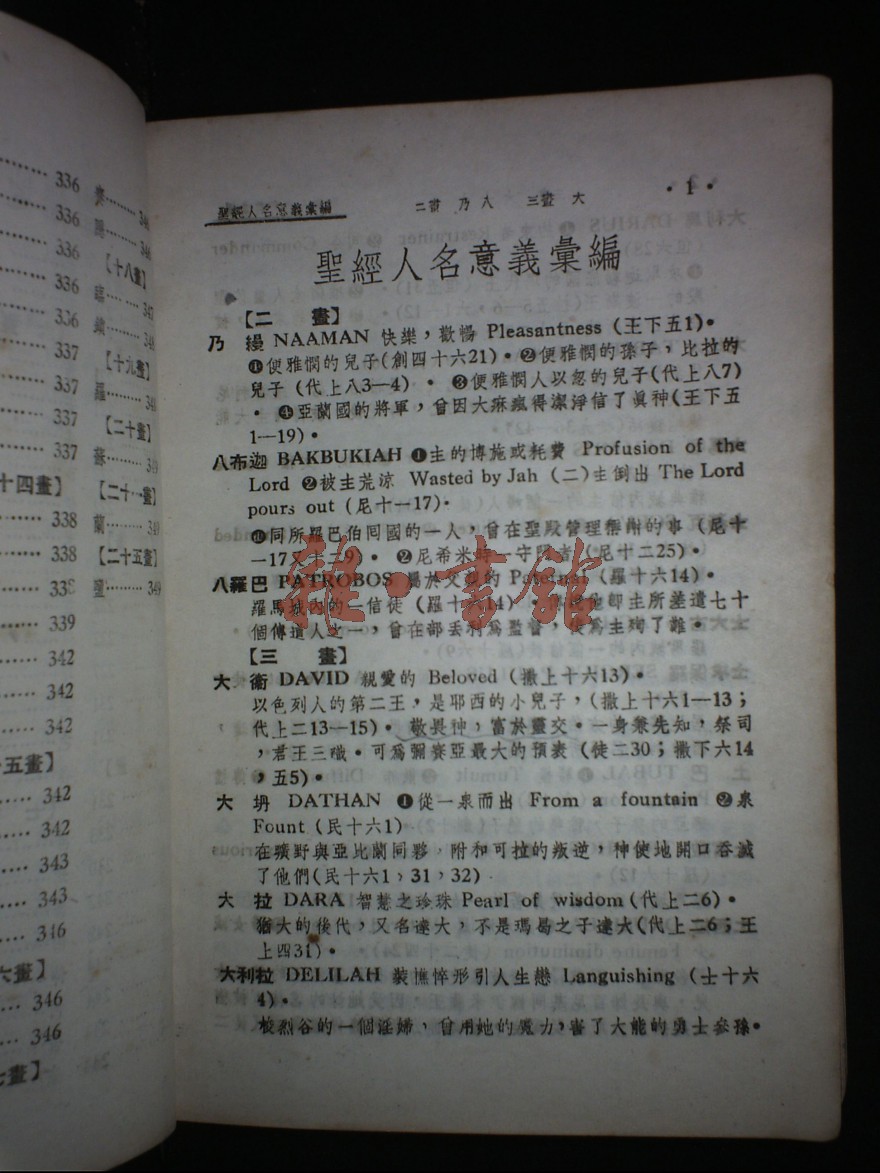 336
336
336
336
336
337
337
337
337
十四畫】
338
338
338
339
342
342
342
十五畫】
342
342
343
343
346
六畫】
346
346
七畫】
【十八畫】
347
348
【十九畫】
羅
【二十畫】
蘇 349
【二十一畫】
蘭 349
【二十五畫】
349
聖經人名意義彙編 二畫 乃 八 三畫 大 •1•
聖經人名意義彙編
【二　畫】
乃　縵 NAAMAN 快樂，歡暢 Pleasantness (王下五1)•
❶便雅憫的兒子(創四十六21)•❷便雅憫的孫子，比拉的
兒子 (代上八3—4) • ❸便雅憫人以忽的兒子(代上八7)
•❹亞蘭國的將軍，曾因大痳瘋得潔淨信了眞神(王下五
1—19)•
八布迦 BAKBUKIAH ❶主的博施或耗費 Profusion of the
Lord ❷被主荒涼 Wasted by Jah (二)主倒出 The Lord
pours out (尼十一17)•
❶同所羅巴伯回國的一人，曾在聖殿管理稱謝的事 (尼十
一17又十二9) • ❷尼希米時一守門者(尼十二25)•
八羅巴 PATROBOS 屬於父親的 Paternal (羅十六14)•
羅馬城內的一信徒 (羅十六14) 主所差遣七十
個傳道人之一，曾在部丟利爲監督，後爲主殉了難•
【三　畫】
大　衞 DAVID 親愛的 Beloved (撒上十六13)•
以色列人的第二王，是耶西的小兒子，(撒上十六1—13；
代上二13—15)• 敬畏神，富於靈交•一身兼先知，祭司
，君王三職•可爲彌賽亞最大的預表 (徒二30；撒下六14
，五5)•
大　坍 DATHAN ❶從一泉而出 From a fountain ❷泉
Fount (民十六1)
在曠野與亞比蘭同夥，附和可拉的叛逆，神使地開口吞滅
了他們(民十六1，31，32)•
大　拉 DARA 智慧之珍珠 Pearl of wisdom(代上二6)•
猶大的後代，又名達大，不是瑪曷之子達大(代上二6；王
上四31)•
大利拉 DELILAH 裝憔悴形引人生戀 Languishing (士十六
4)•
梭烈谷的一個淫婦，曾用她的魔力，害了大能的勇士參孫•
雜·書館